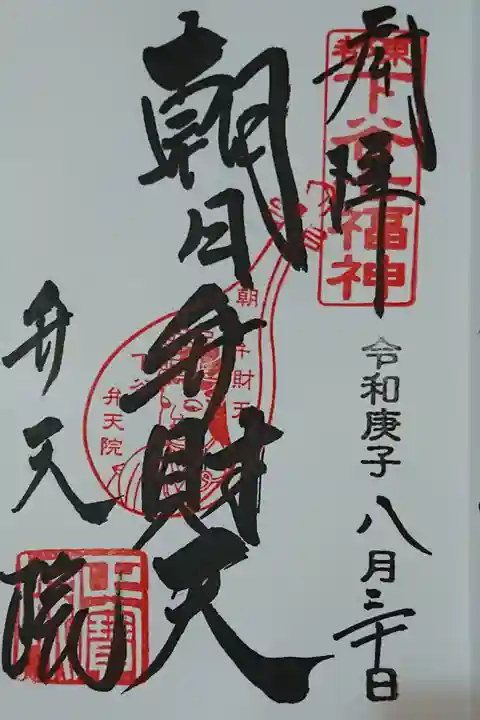 奉拝
東都
下谷七福神
令和庚子八月三十日
朝日弁財天
弁財天
弁天院
弁天院